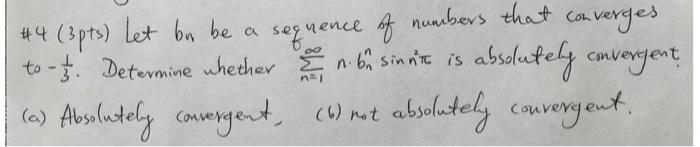 #4 (3pts) Let bn be a sequence of numbers that converges
to -1/3. Determine whether ∑_{n=1}^{∞} n·b_n^n sin n²π is absolutely convergent.
(a) Absolutely convergent, (b) not absolutely convergent.